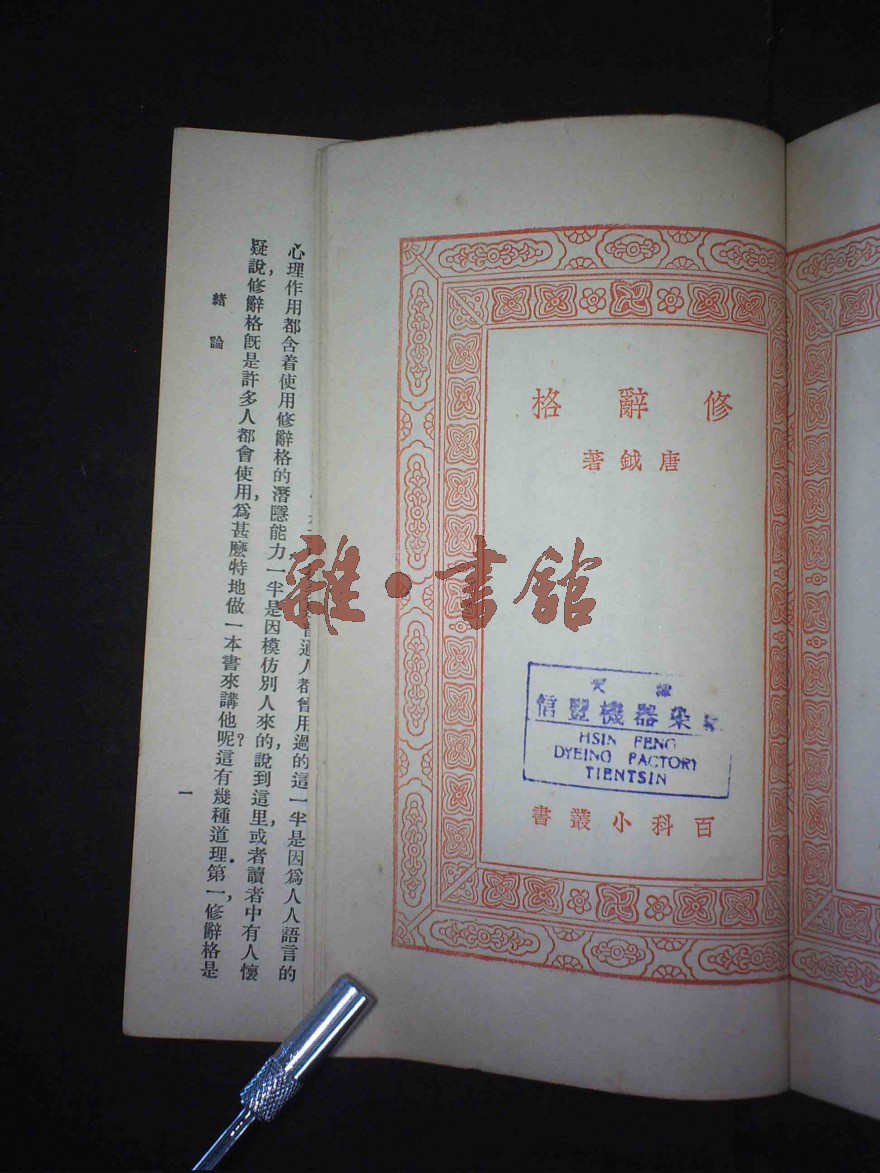 修辭格
唐鉞著
雜·書館
信豐機器染
HSIN FENG
DYEING FACTORY
TIENTSIN
百科小叢書
通人都曾用過的這一半是因爲人人語言的
心理作用都含着使用修辭格的潛隱能力,一半是因模仿別人來的說到這里,或者讀者中有人懷
疑說,修辭格旣是許多人都會使用,爲甚麼特地做一本書來講他呢?這有幾種道理.第一,修辭格是
緒論
一